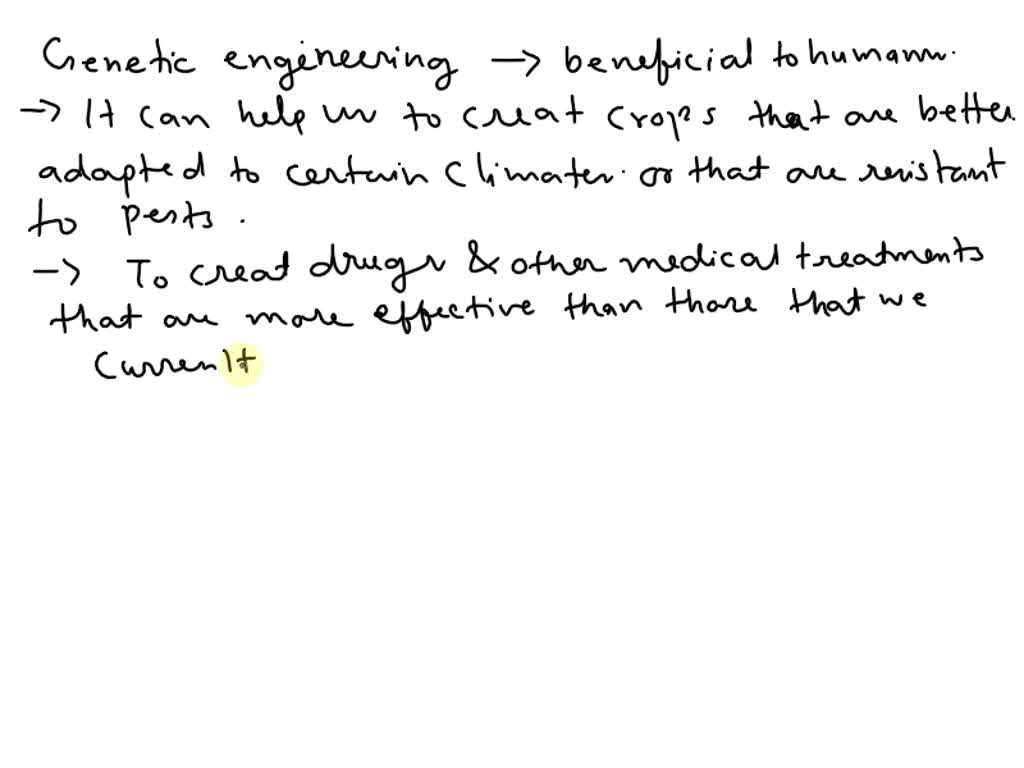 Genetic engineering → beneficial to humans.
→ It can help us to creat crops that are better
adapted to certain climates. or that are resistant
to pests.
→ To creat drugs & other medical treatments
that are more effective than those that we
Current